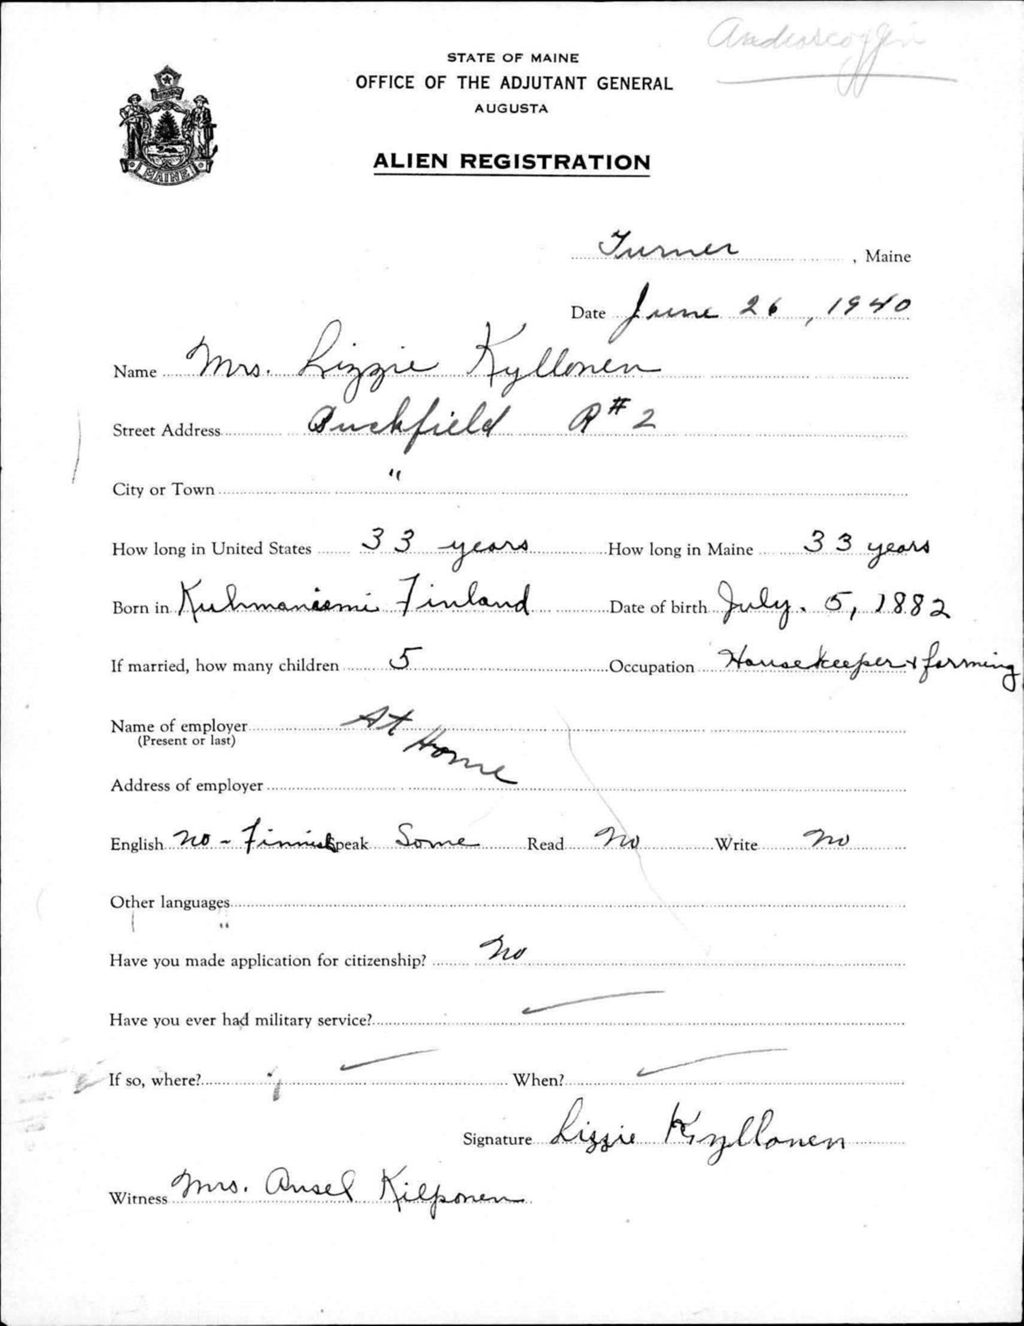 Androscoggin
STATE OF MAINE
OFFICE OF THE ADJUTANT GENERAL
AUGUSTA
MAINE
ALIEN REGISTRATION
Turner, Maine
Date June 26, 1940
Name Mrs. Lizzie Kyllonen
Street Address Buckfield R#2
City or Town "
How long in United States 33 years How long in Maine 33 years
Born in Kuhmaniemi Finland Date of birth July. 5, 1882
If married, how many children 5 Occupation Housekeeper & farming
Name of employer At Home
(Present or last)
Address of employer
English No - Finnish Speak Some Read No Write No
Other languages
Have you made application for citizenship? No
Have you ever had military service?
If so, where? When?
Signature Lizzie Kyllonen
Witness Mrs. Ansel Kilponen